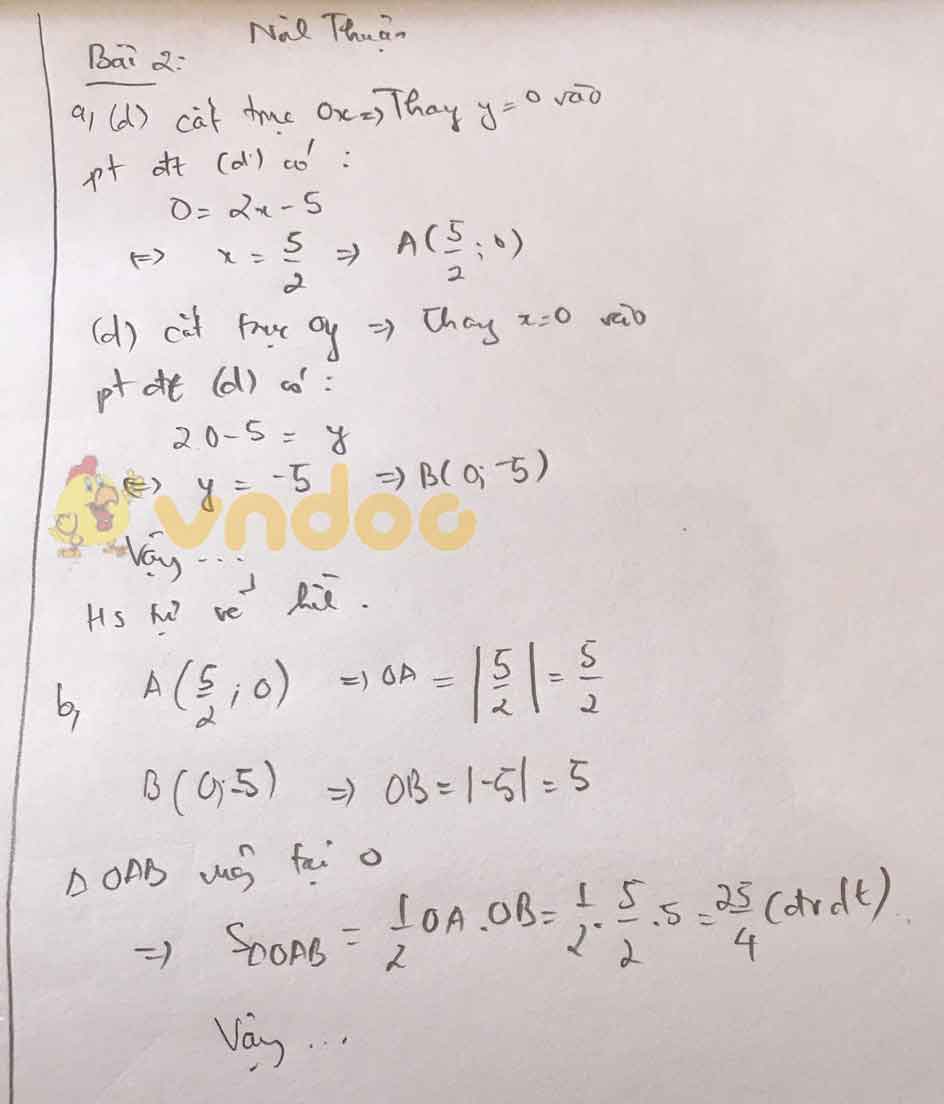 Ninh Thuận
Bài 2:
a, (d) cắt trục Ox => Thay y = 0 vào
pt đt (d) có :
0 = 2x - 5
<=> x = 5/2 => A(5/2 ; 0)
(d) cắt trục Oy => Thay x = 0 vào
pt đt (d) có :
2.0 - 5 = y
<=> y = -5 => B(0; -5)
vndoc
Vậy ...
Hs tự vẽ hình.
b, A(5/2 ; 0) => OA = |5/2| = 5/2
B(0; -5) => OB = |-5| = 5
Δ OAB vuông tại O
=> SΔOAB = 1/2 OA . OB = 1/2 . 5/2 . 5 = 25/4 (đvdt)
Vậy ...